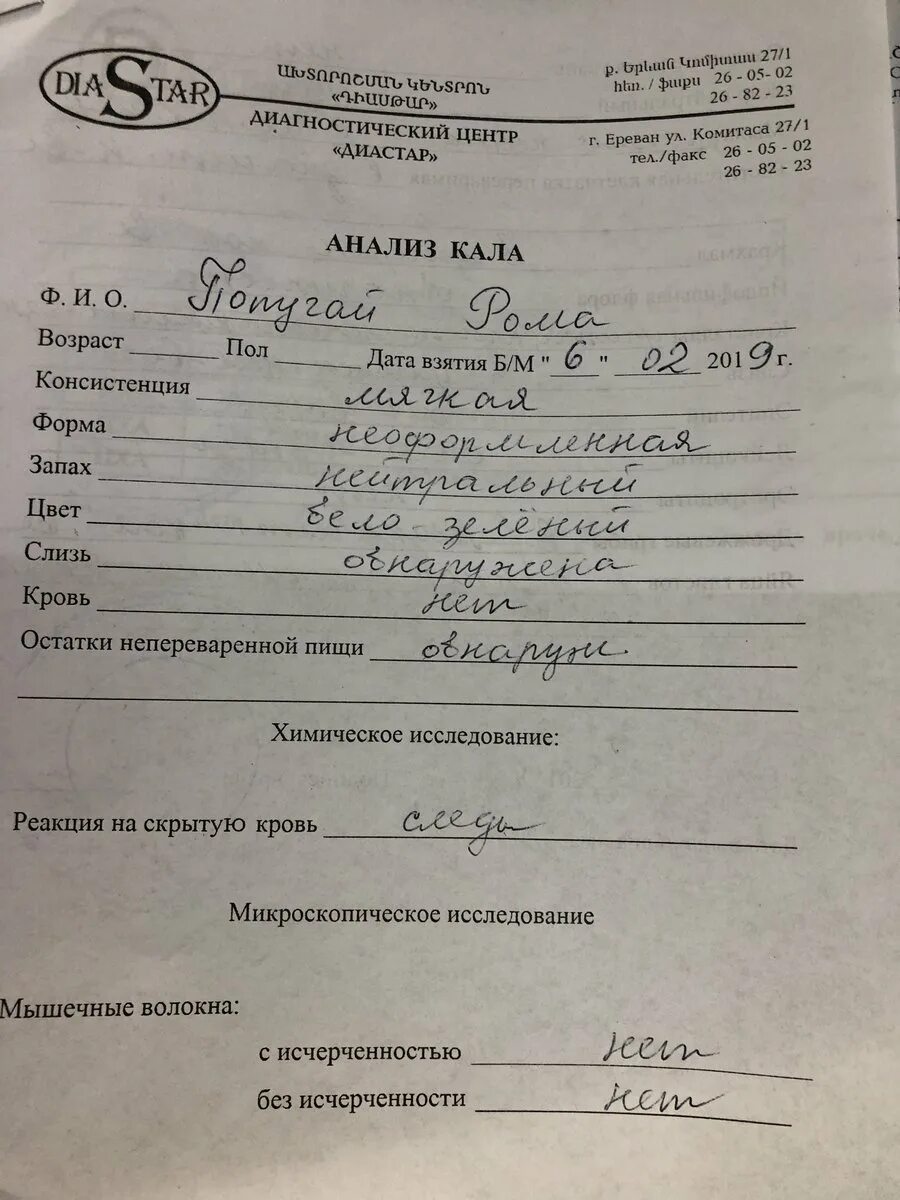 DIA STAR
ԱԽՏՈՐՈՇՄԱՆ ԿԵՆՏՐՈՆ
«ԴԻԱՍԹԱՐ»
ДИАГНОСТИЧЕСКИЙ ЦЕНТР
«ДИАСТАР»
ք. Երևան Կոմիտաս 27/1
հեռ. / ֆաքս 26 - 05 - 02
26 - 82 - 23
г. Ереван ул. Комитаса 27/1
тел./факс 26 - 05 - 02
26 - 82 - 23
АНАЛИЗ КАЛА
Ф. И. О. Попугай Рома
Возраст Пол Дата взятия Б/М "6" 02 2019 г.
Консистенция мягкая
Форма неоформленная
Запах нейтральный
Цвет бело-зелёный
Слизь обнаружена
Кровь нет
Остатки непереваренной пищи обнаруж.
Химическое исследование:
Реакция на скрытую кровь следы
Микроскопическое исследование
Мышечные волокна:
с исчерченностью нет
без исчерченности нет